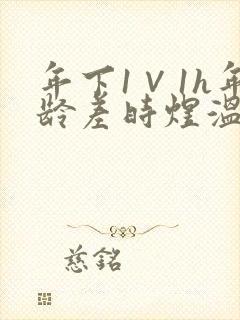 年下1V1h年
龄差時煌溫
慈銘